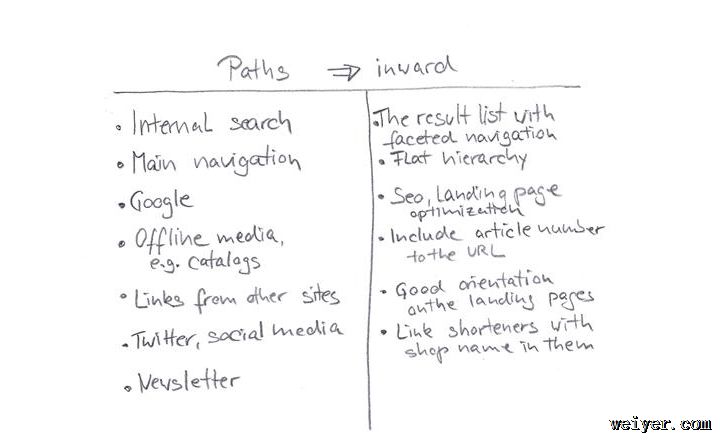 Paths ⇒ inward
• Internal search
• Main navigation
• Google
• Offline media,
e.g. catalogs
• Links from other sites
• Twitter, social media
• Newsletter
• The result list with
faceted navigation
• Flat hierarchy
• Seo, landing page
optimization
• Include article number
to the URL
• Good orientation
on the landing pages
• Link shorteners with
shop name in them
weiyer.com